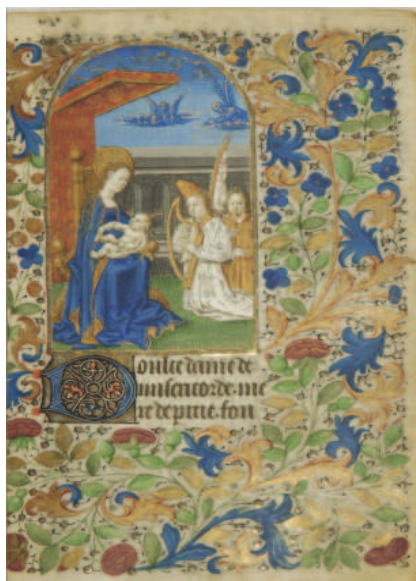 Doulce dame de
misericorde. me
re de pitie. fon